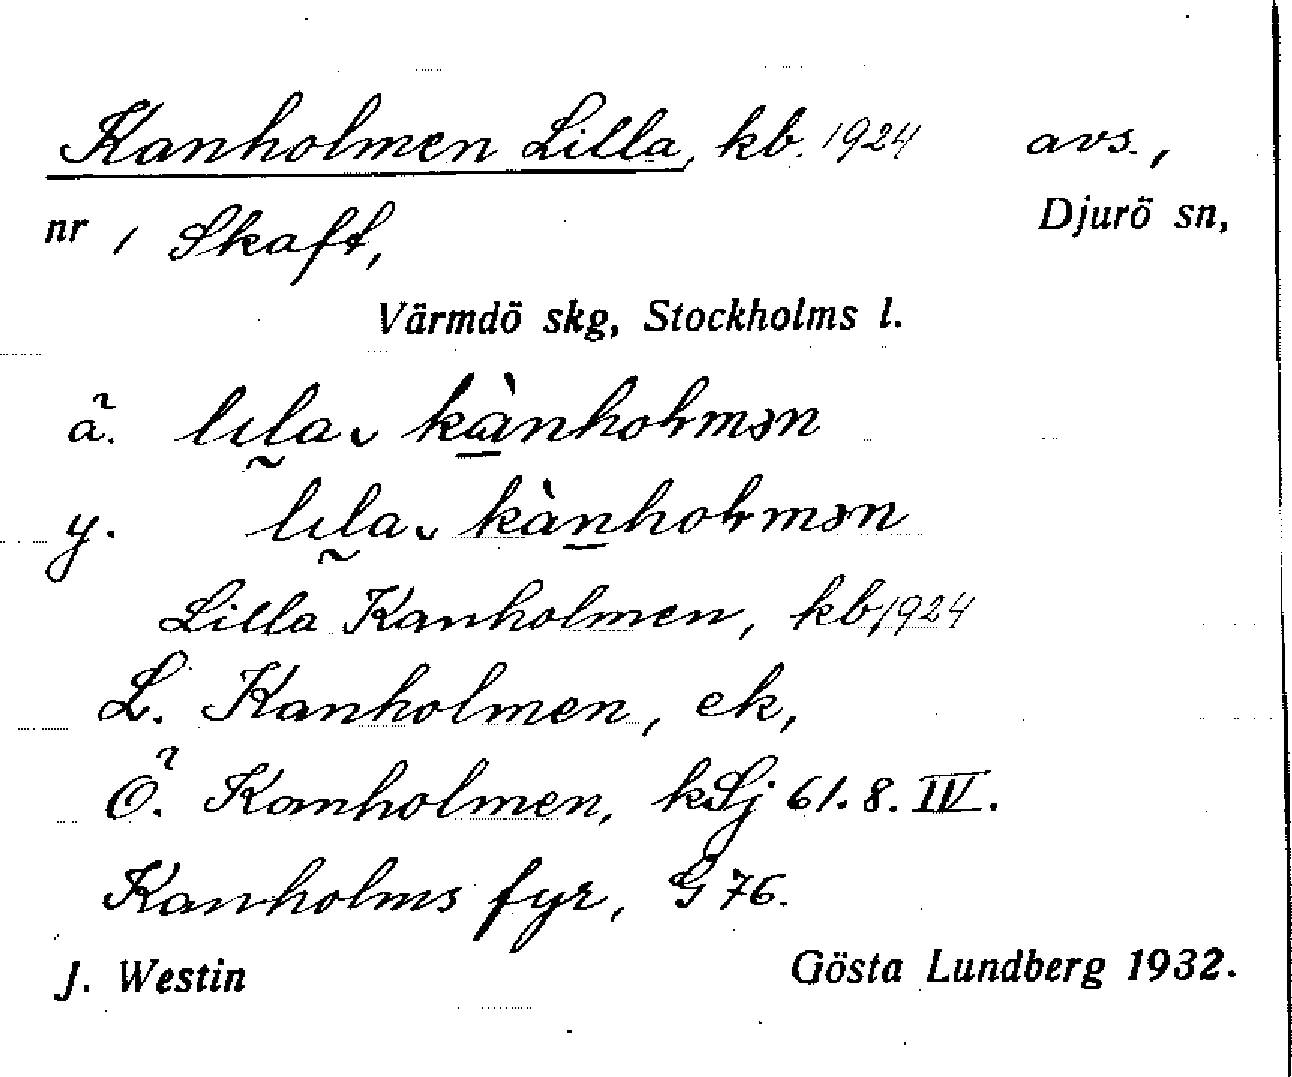 Kanholmen Lilla, kb. 1924 avs.,
nr 1 Skaft, Djurö sn,
Värmdö skg, Stockholms l.
ä. lıla kànholmən
y. lıla kànholmən
Lilla Kanholmen, kb, 1924
L. Kanholmen, ek,
Ö. Kanholmen, kSj 61. 8. IV.
Kanholms fyr, G 76.
J. Westin Gösta Lundberg 1932.